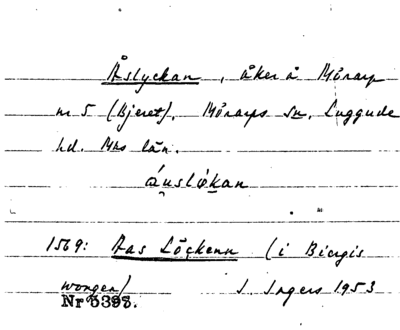 Åslyckan, åker å Mörarp
nr 5 (Bjeret), Mörarps sn, Luggude
hd. Mhs län.
áu̯slø̀kan
1569: Aas Löckenn (i Biergis
wongen) I. Ingers 1953
Nr 5398.